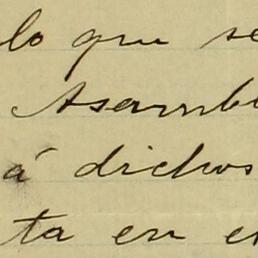 lo que se
Asamble
á dichos
ta en e